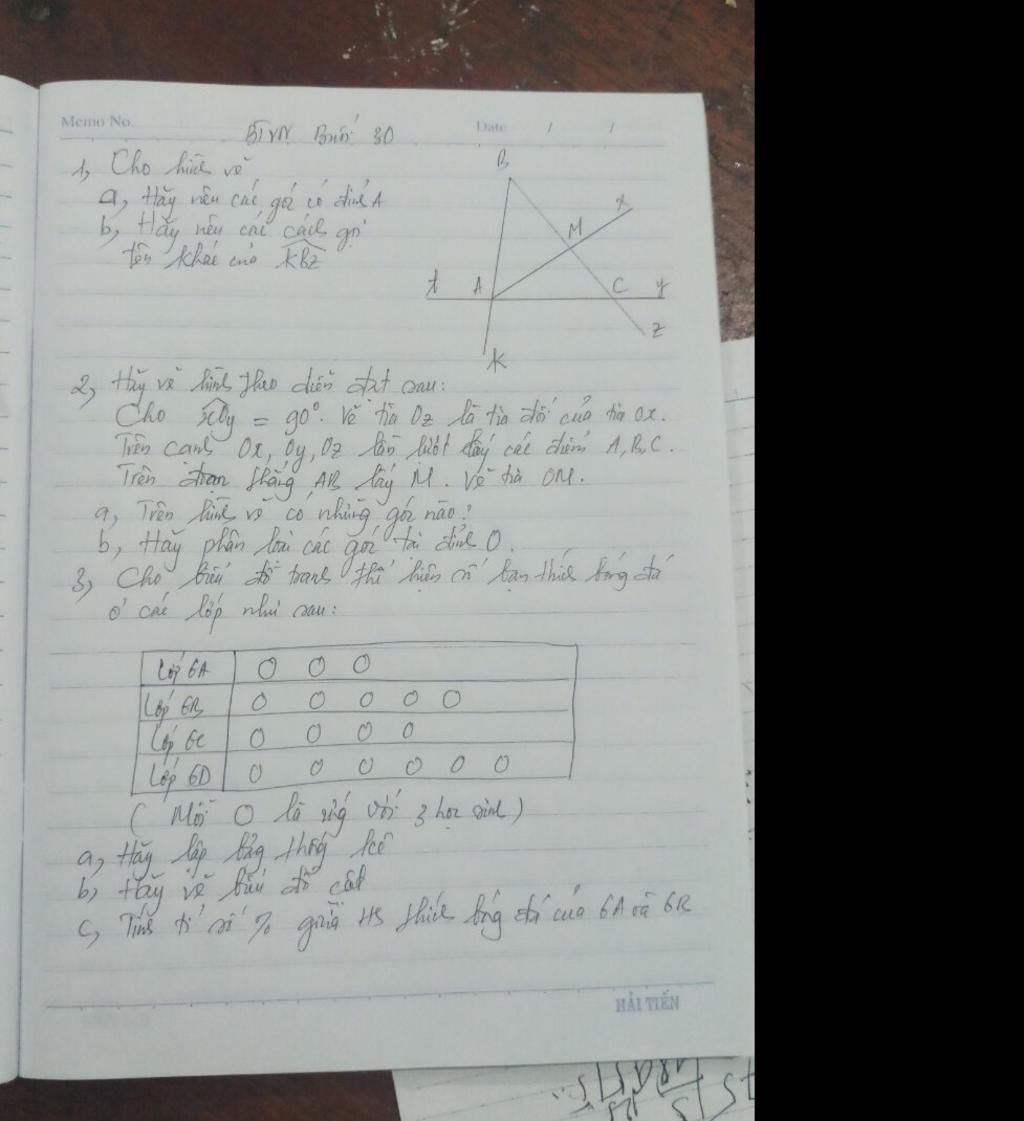 Memo No.
BTVN Buổi 30
Date / /
1, Cho hình vẽ
a, Hãy nêu các góc có đỉnh A
b, Hãy nêu các cách gọi
tên khác của KBz
B
x
M
t A C y
z
K
2, Hãy vẽ hình theo diễn đạt sau:
Cho xOy = 90°. Vẽ tia Oz là tia đối của tia Ox.
Trên cạnh Ox, Oy, Oz lần lượt lấy các điểm A, B, C.
Trên đoạn thẳng AB lấy M. Vẽ tia OM.
a, Trên hình vẽ có những góc nào?
b, Hãy phân loại các góc tại đỉnh O.
3, Cho biểu đồ tranh thể hiện số bạn thích bóng đá
ở các lớp như sau:
Lớp 6A O O O
Lớp 6B O O O O O
Lớp 6C O O O O
Lớp 6D O O O O O O
( Mỗi O là ứng với 3 học sinh )
a, Hãy lập bảng thống kê
b, Hãy vẽ biểu đồ cột
c, Tính tỉ số % giữa HS thích bóng đá của 6A và 6B
HẢI TIẾN